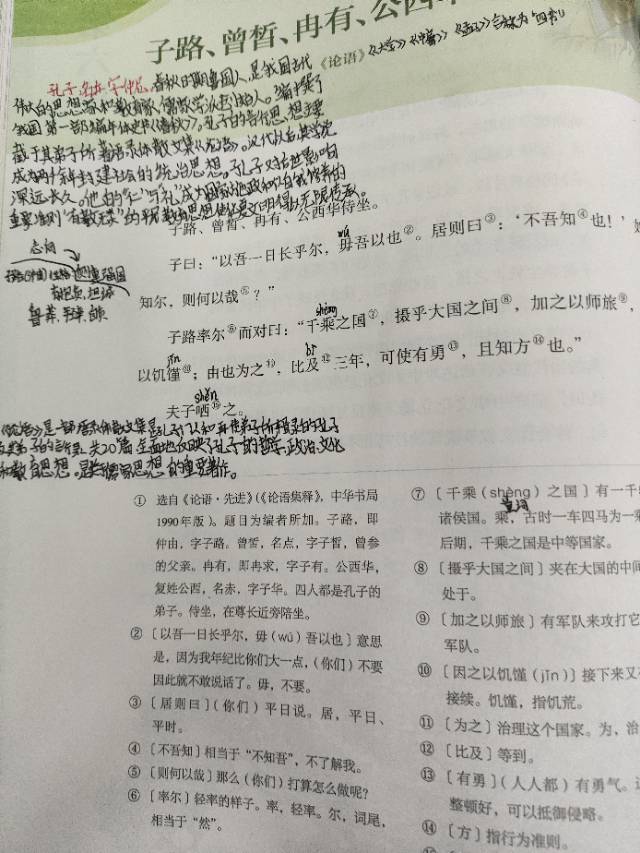 子路、曾皙、冉有、公西
《论语》《大学》《中庸》《孟子》合称为"四书"
孔子,名丘,字仲尼,春秋时期鲁国人,是我国古代
伟大的思想家和教育家,儒家学派创始人。编撰了
我国第一部编年体史书《春秋》。孔子的言行思想主要
载于其弟子所著语录体散文集《论语》。汉代以后,其学说
成为两千余年封建社会的统治思想。孔子对后世影响
深远长久。他由的"仁""礼"成为国家施政和自我修养的
重要准则
子路、曾皙、冉有、公西华侍坐。
志向
wú
子曰:"以吾一日长乎尔,毋吾以也②。居则曰③:'不吾知④也!'
知尔,则何以哉⑤?"
shèng
子路率尔⑥而对曰:"千乘之国⑦,摄乎大国之间⑧,加之以师旅⑨,
jǐn bì
以饥馑⑩;由也为之⑪,比及⑫三年,可使有勇⑬,且知方⑭也。"
shěn
夫子哂⑮之。
《论语》是一部语录体散文集,是孔子门人和再传弟子所辑录的孔子
及其弟子的言行录,共20篇,全面地反映了孔子的哲学、政治、文化
和教育思想。是儒家思想的重要著作。
① 选自《论语·先进》(《论语集释》,中华书局
1990年版)。题目为编者所加。子路,即
仲由,字子路。曾皙,名点,字子皙,曾参
的父亲。冉有,即冉求,字子有。公西华,
复姓公西,名赤,字子华。四人都是孔子的
弟子。侍坐,在尊长近旁陪坐。
② 〔以吾一日长乎尔,毋(wú)吾以也〕意思
是,因为我年纪比你们大一点,(你们)不要
因此就不敢说话了。毋,不要。
③ 〔居则曰〕(你们)平日说。居,平日、
平时。
④ 〔不吾知〕相当于"不知吾",不了解我。
⑤ 〔则何以哉〕那么(你们)打算怎么做呢?
⑥ 〔率尔〕轻率的样子。率,轻率。尔,词尾,
相当于"然"。
⑦ 〔千乘(shèng)之国〕有一千
量词
诸侯国。乘,古时一车四马为一
后期,千乘之国是中等国家。
⑧ 〔摄乎大国之间〕夹在大国的中
处于。
⑨ 〔加之以师旅〕有军队来攻打它
军队。
⑩ 〔因之以饥馑(jǐn)〕接下来又
接续。饥馑,指饥荒。
⑪ 〔为之〕治理这个国家。为,治
⑫ 〔比及〕等到。
⑬ 〔有勇〕(人人都)有勇气。
整顿好,可以抵御侵略。
⑭ 〔方〕指行为准则。